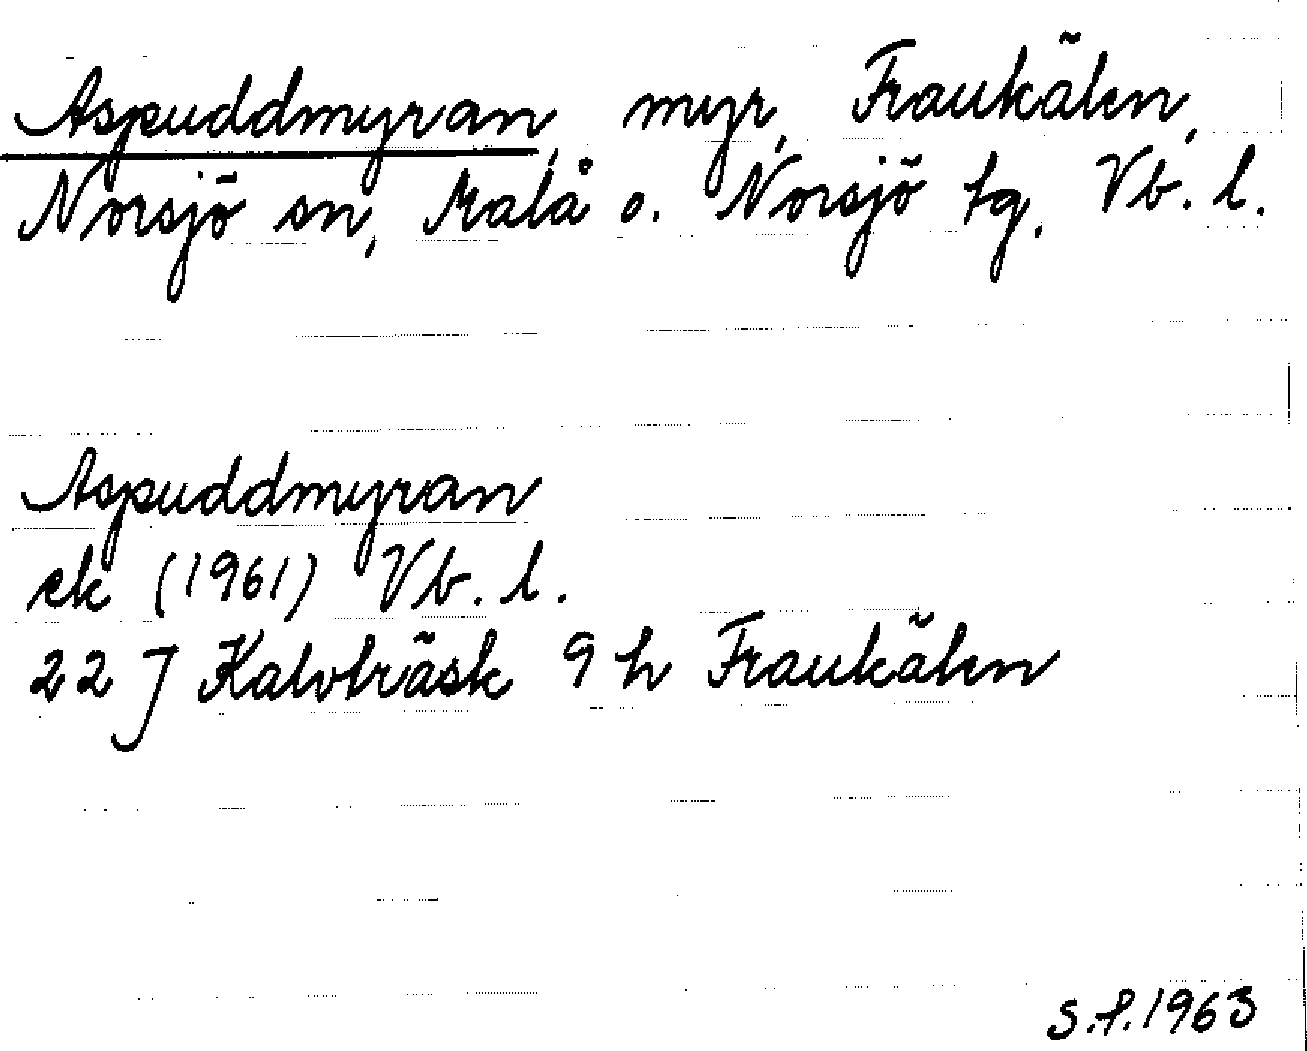 Aspuddmyran, myr, Fraukälen,
Norsjö sn, Malå o. Norsjö tg. Vb. l.
Aspuddmyran
ek (1961) Vb. l.
22 J Kalvträsk 9 h Fraukälen
S.f. 1963